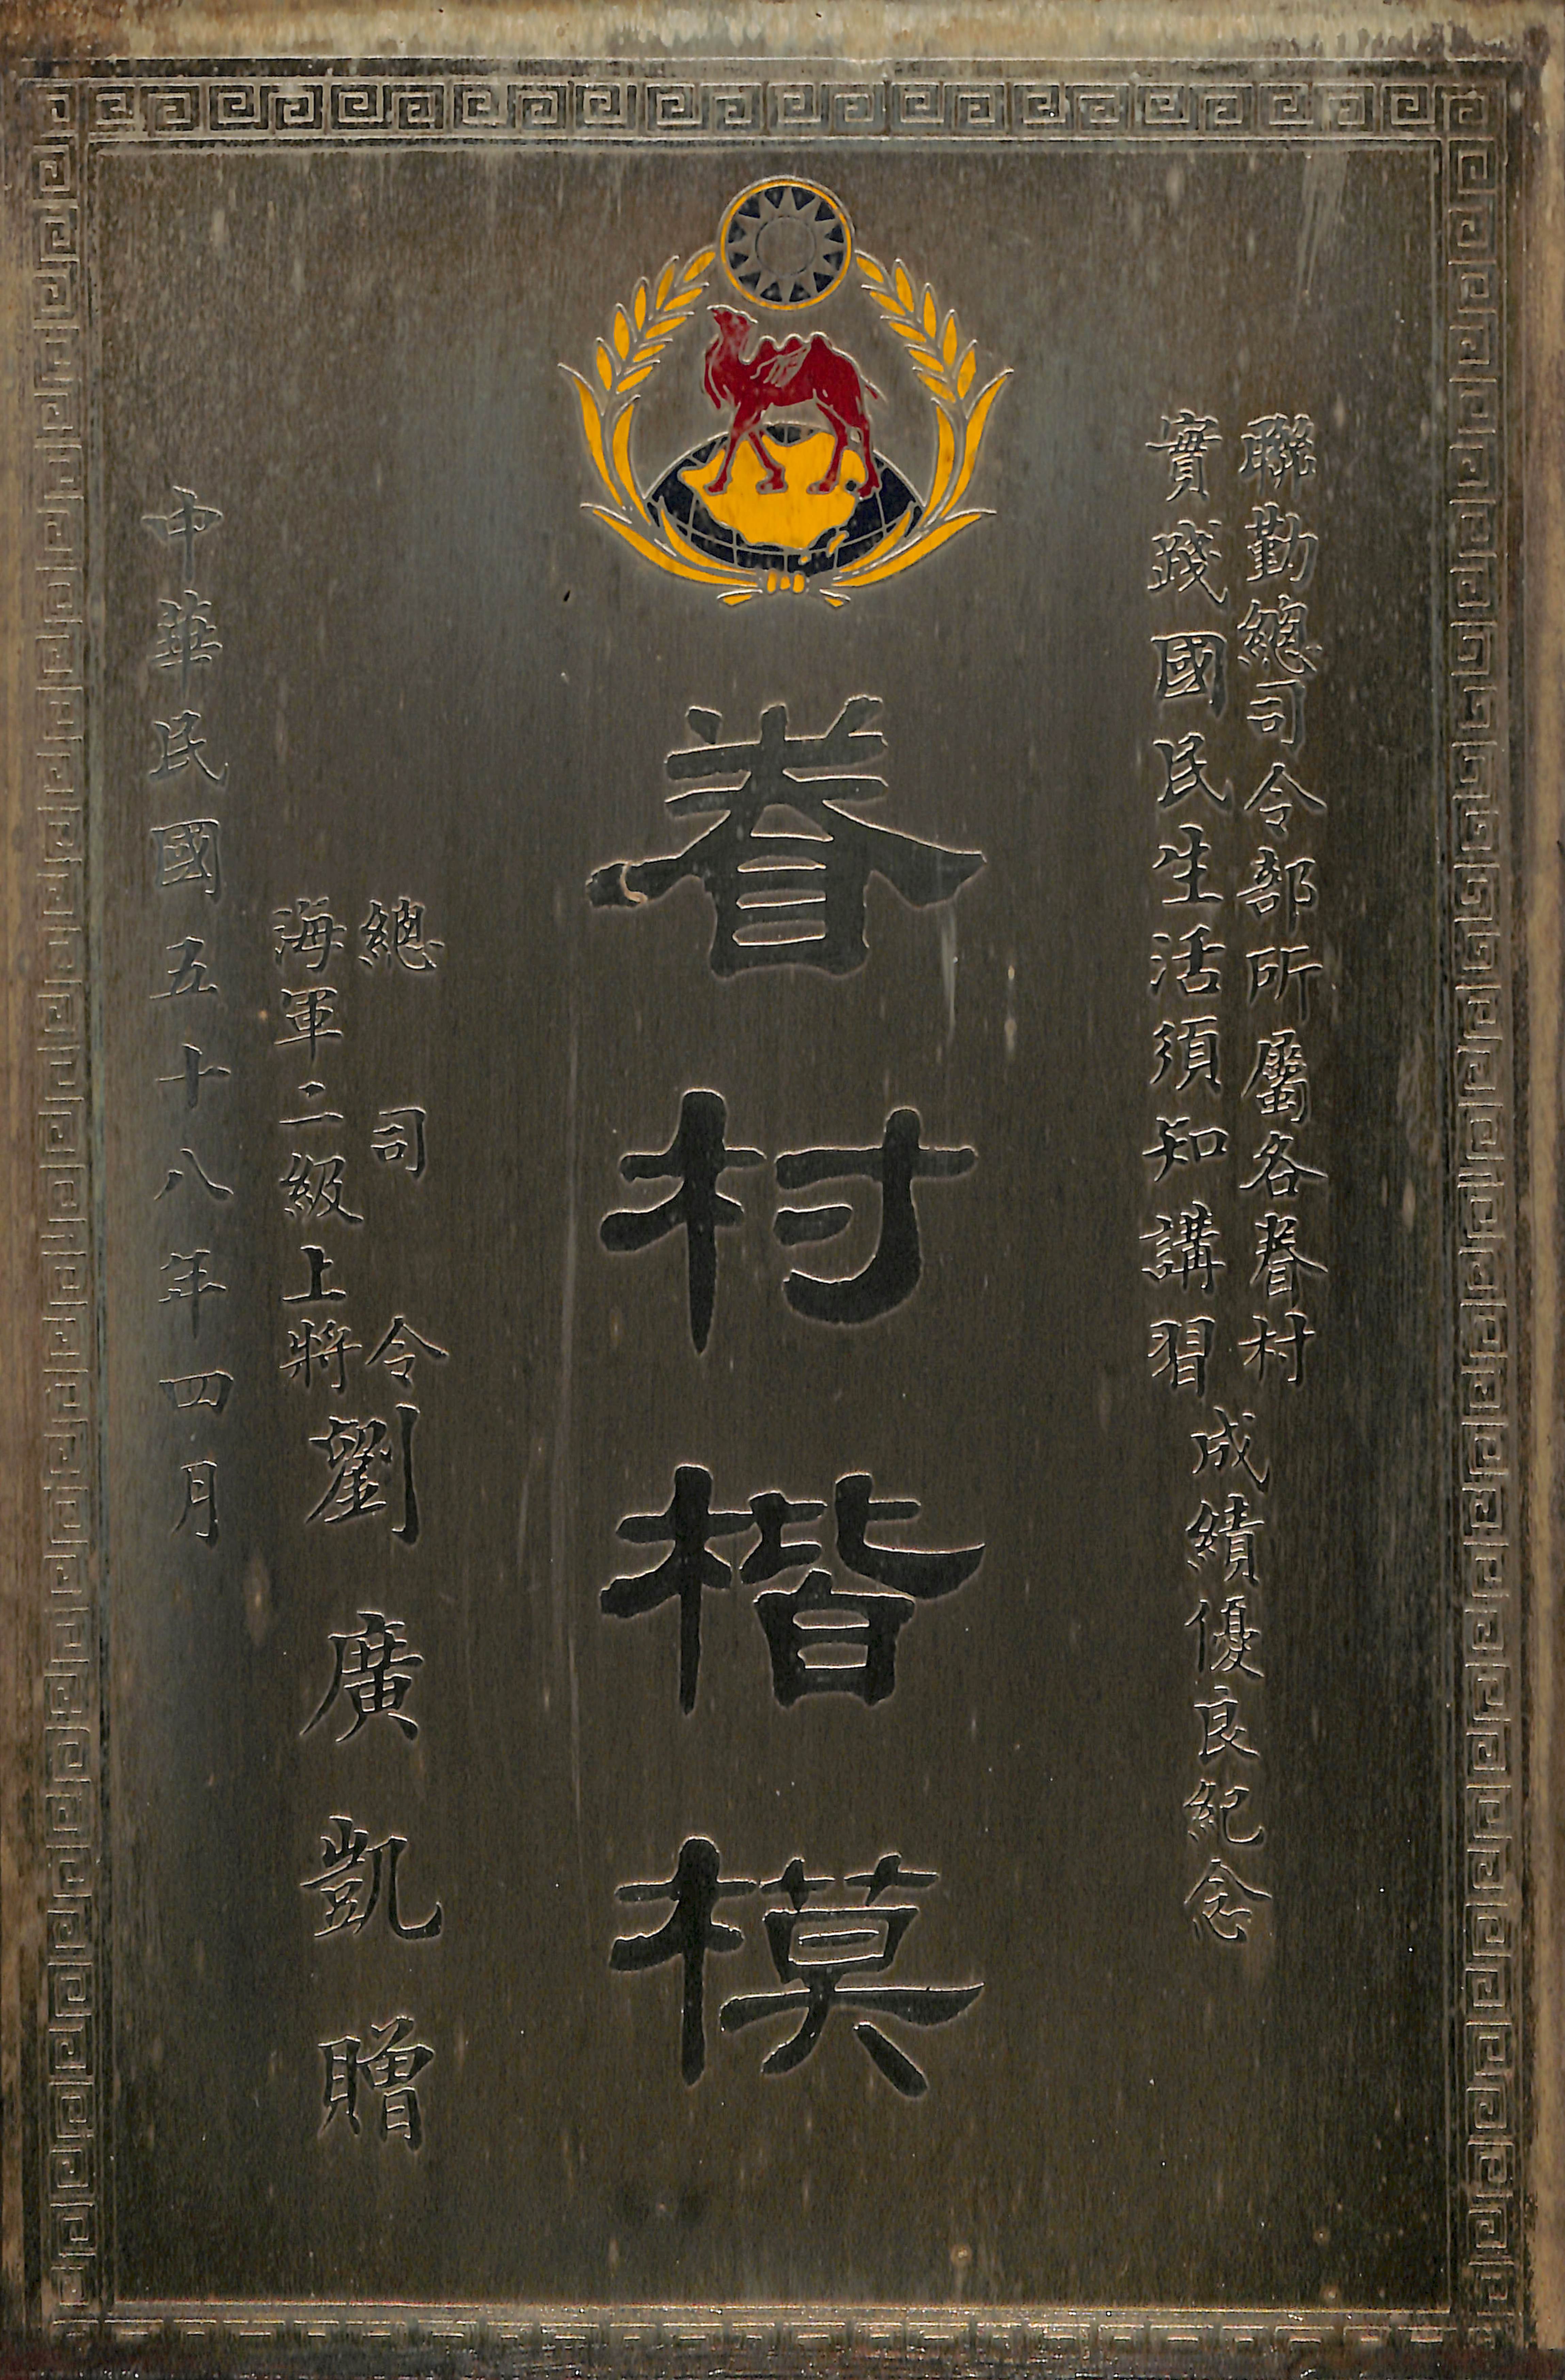 聯勤總司令部所屬各眷村
實踐國民生活須知講習
成績優良紀念
眷村楷模
總司令
海軍二級上將
劉廣凱贈
中華民國五十八年四月